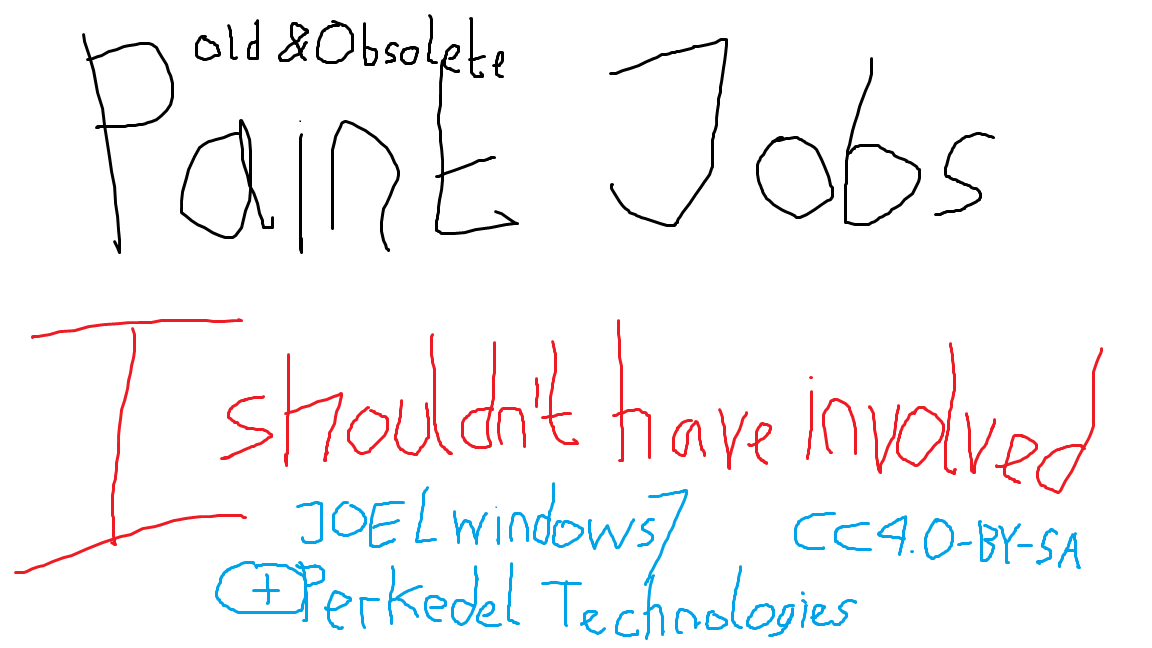 old & Obsolete
Paint Jobs
I shouldn't have involved
JOELwindows7
CC4.0-BY-SA
+Perkedel Technologies